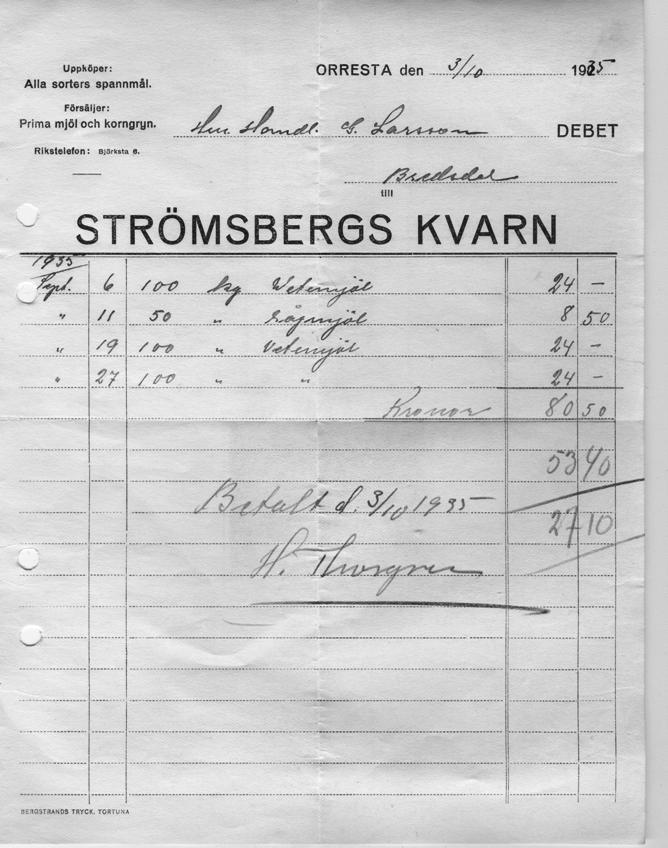 Uppköper:
Alla sorters spannmål.
Försäljer:
Prima mjöl och korngryn.
Rikstelefon: Björksta 6.
ORRESTA den 3/10 1935
Herr Handl. G. Larsson DEBET
till
STRÖMSBERGS KVARN
1935
Sept. 6 100 kg Vetemjöl 24 —
" 11 50 " Rågmjöl 8 50
" 19 100 " Vetemjöl 24 —
" 27 100 " " 24 —
Kronor 80 50
53 40
Betalt d. 3/10 1935
27 10
H.
BERGSTRANDS TRYCK, TORTUNA